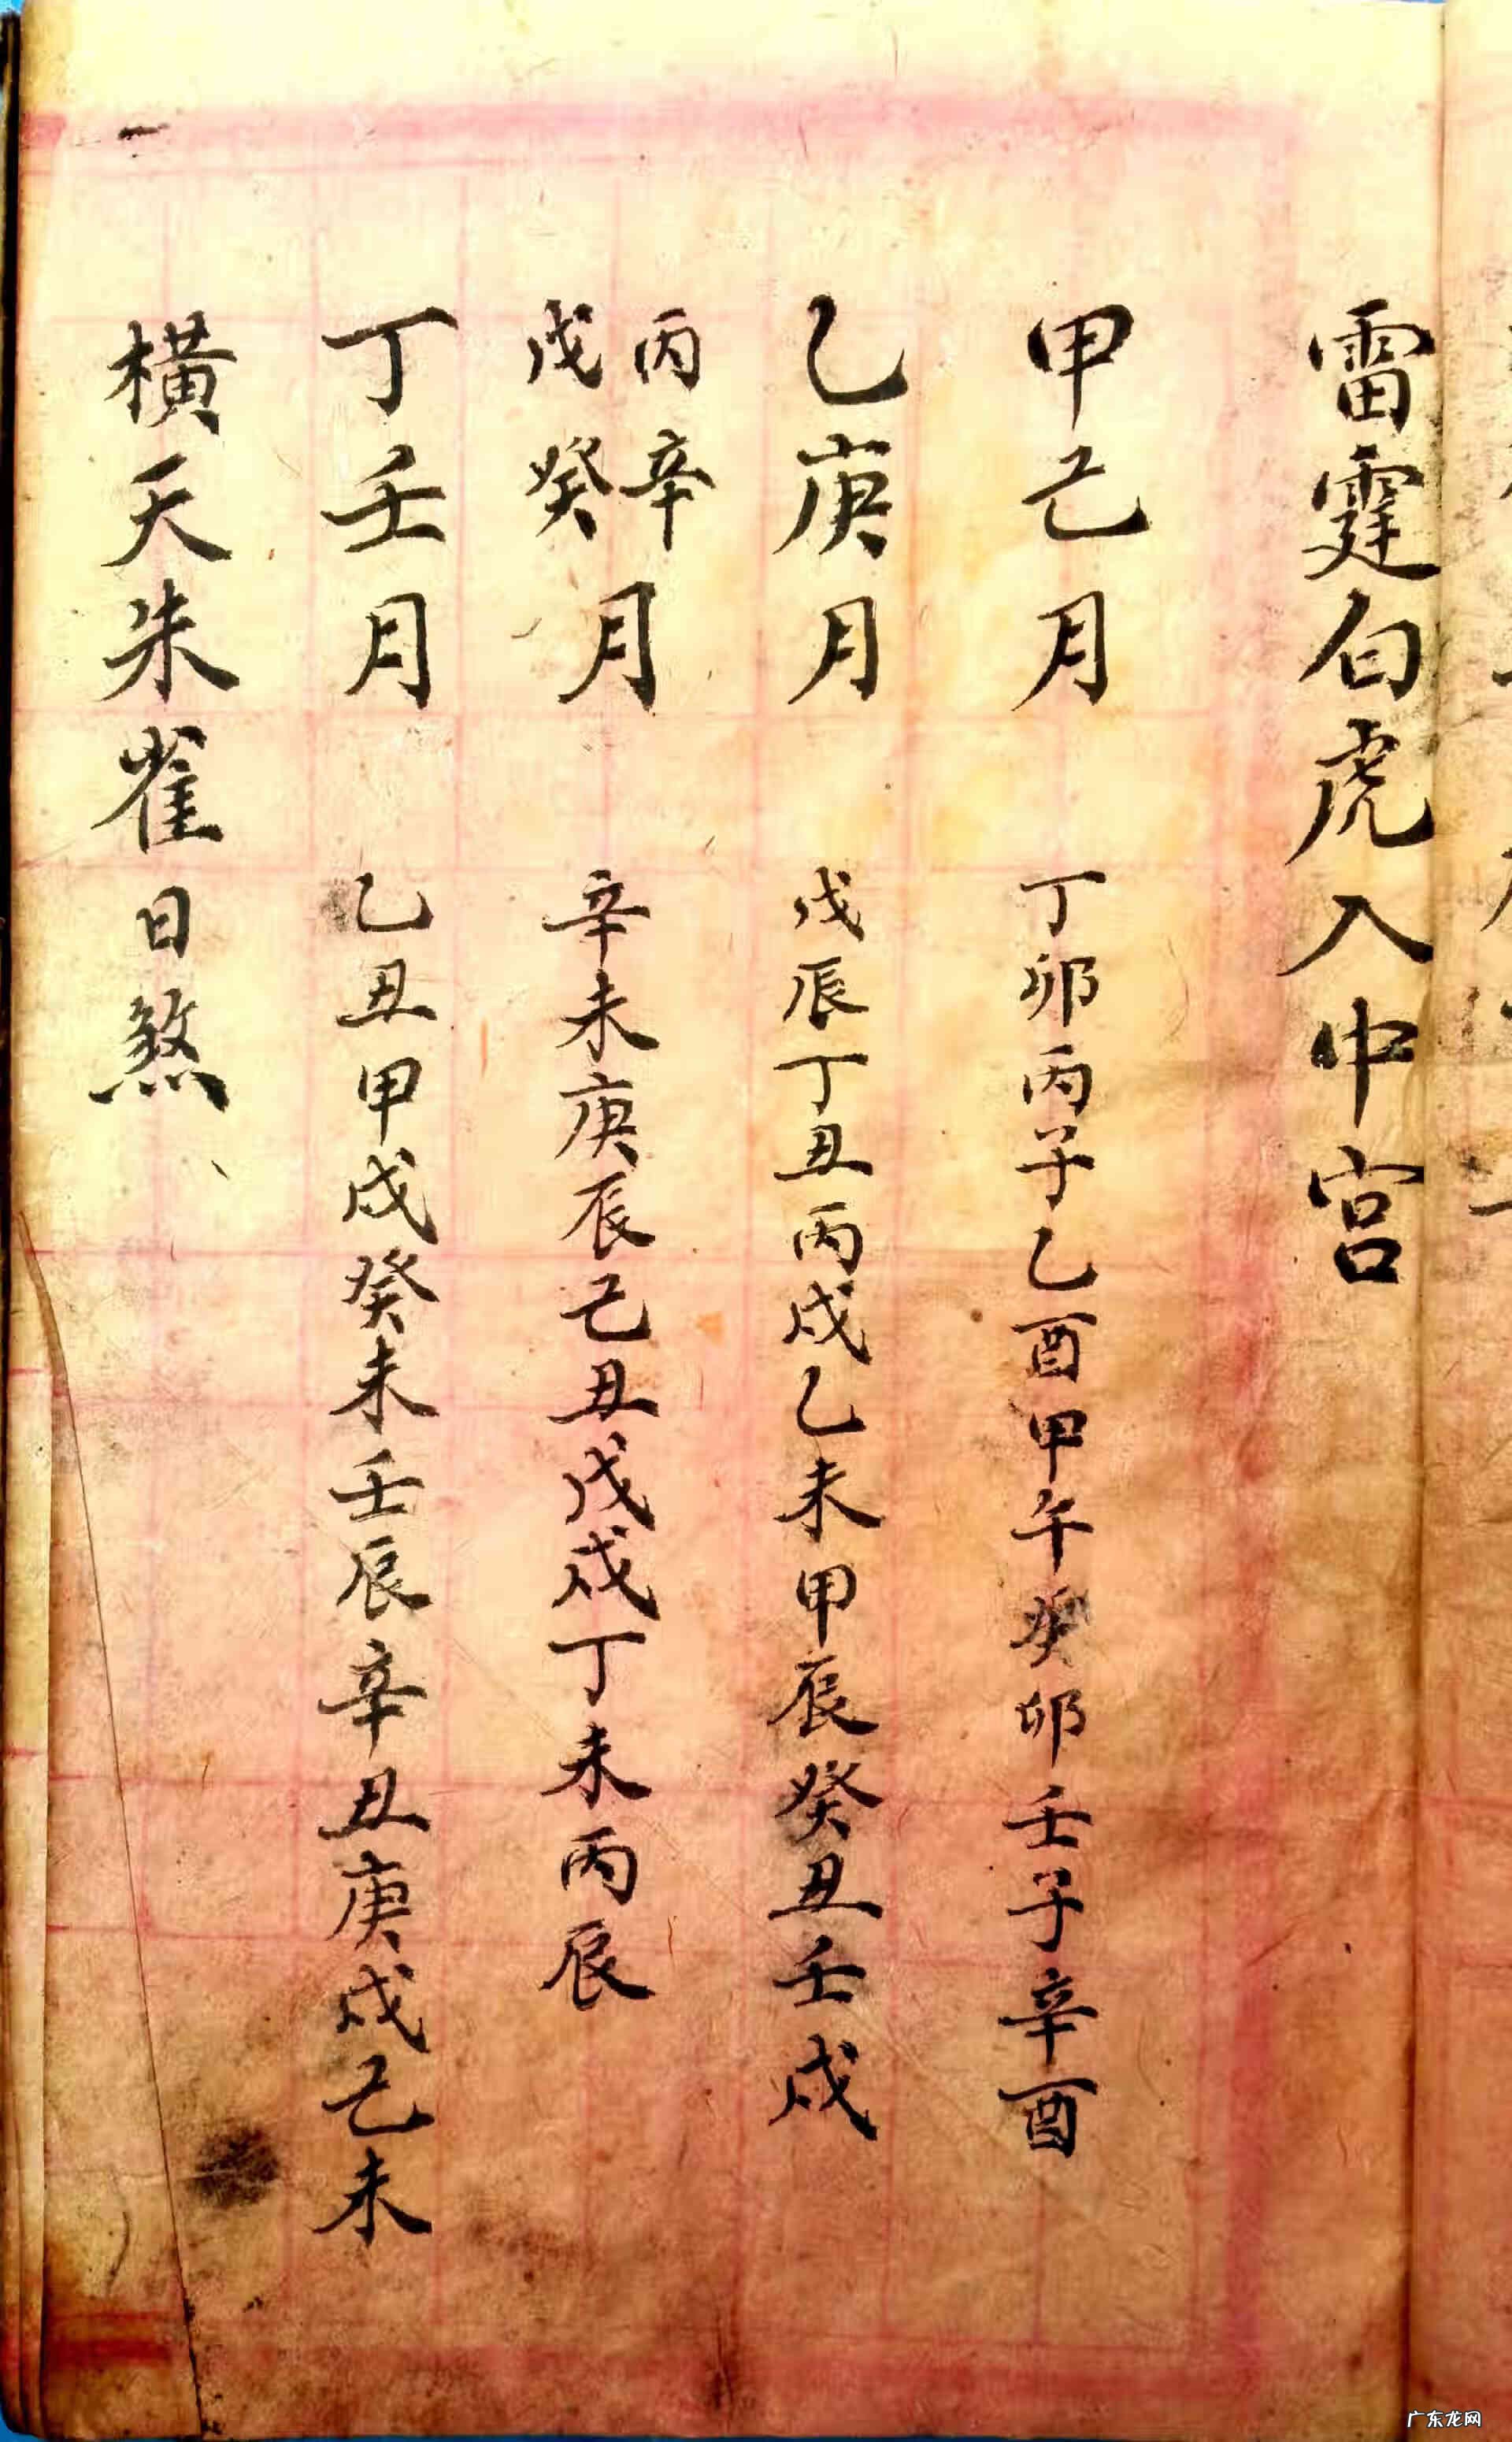 雷霆白虎入中宮
甲己月 丁卯丙子乙酉甲午癸卯壬子辛酉
乙庚月 戊辰丁丑丙戌乙未甲辰癸丑壬戌
丙辛
戊癸
月 辛未庚辰己丑戊戌丁未丙辰
丁壬月 乙丑甲戌癸未壬辰辛丑庚戌己未
橫天朱雀日煞
广东龙网